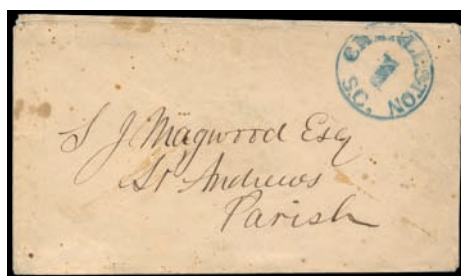 CHARLESTON
S.C.
S J. Magwood Esq
St Andrews
Parish